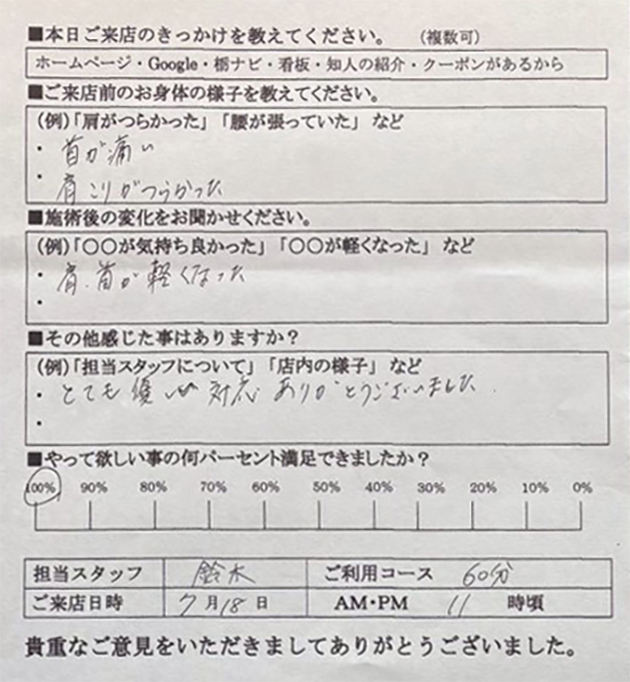 ■本日ご来店のきっかけを教えてください。 (複数可)
ホームページ・Google・栃ナビ・看板・知人の紹介・クーポンがあるから
■ご来店前のお身体の様子を教えてください。
(例)「肩がつらかった」「腰が張っていた」など
・ 首が痛い
・ 肩こりがつらかった
■施術後の変化をお聞かせください。
(例)「〇〇が気持ち良かった」「〇〇が軽くなった」など
・ 肩、首が軽くなった
・
■その他感じた事はありますか?
(例)「担当スタッフについて」「店内の様子」など
・ とても優しい対応ありがとうございました
・
■やって欲しい事の何パーセント満足できましたか?
100% 90% 80% 70% 60% 50% 40% 30% 20% 10% 0%
担当スタッフ 鈴木 ご利用コース 60分
ご来店日時 7月18日 AM・PM 11 時頃
貴重なご意見をいただきましてありがとうございました。